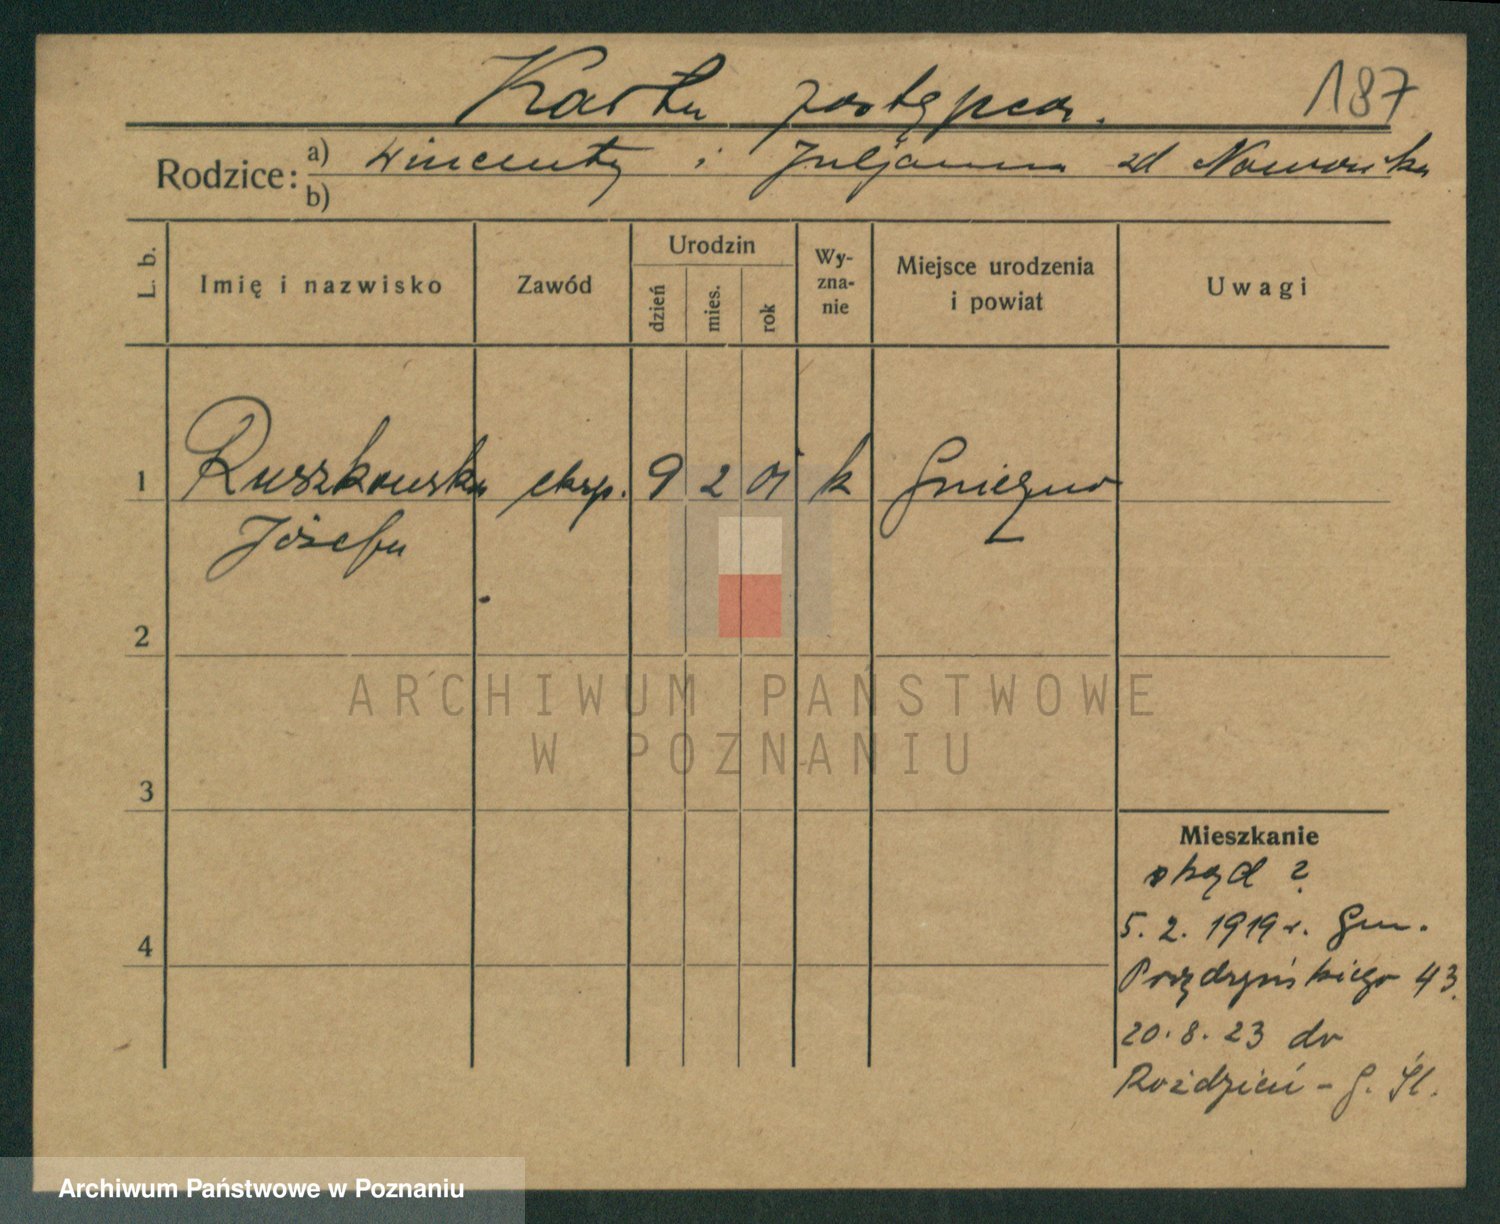 Karta zastępcza.
187
Rodzice:
a) Wincenty i Juljanna zd Nowowska
b)
L. b.
Imię i nazwisko
Zawód
Urodzin
dzień
mies.
rok
Wy-
zna-
nie
Miejsce urodzenia
i powiat
Uwagi
1 Ruszkowska eksp. 9 2 01 k Gniezno
Józefa
2
3
4
ARCHIWUM PAŃSTWOWE
W POZNANIU
Mieszkanie
skąd ?
5. 2. 1919 r. Gen.
Prądzyńskiego 43.
20. 8. 23 do
Roździeń - G. Śl.
Archiwum Państwowe w Poznaniu